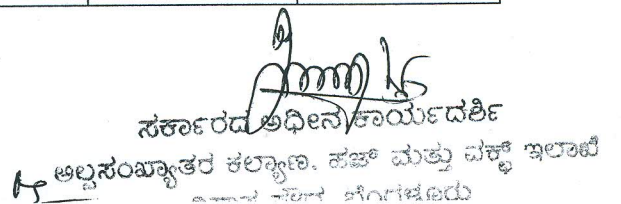 ಸರ್ಕಾರದ ಅಧೀನ ಕಾರ್ಯದರ್ಶಿ
ಅಲ್ಪಸಂಖ್ಯಾತರ ಕಲ್ಯಾಣ, ಹಜ್ ಮತ್ತು ವಕ್ಫ್ ಇಲಾಖೆ
ಬೆಂಗಳೂರು